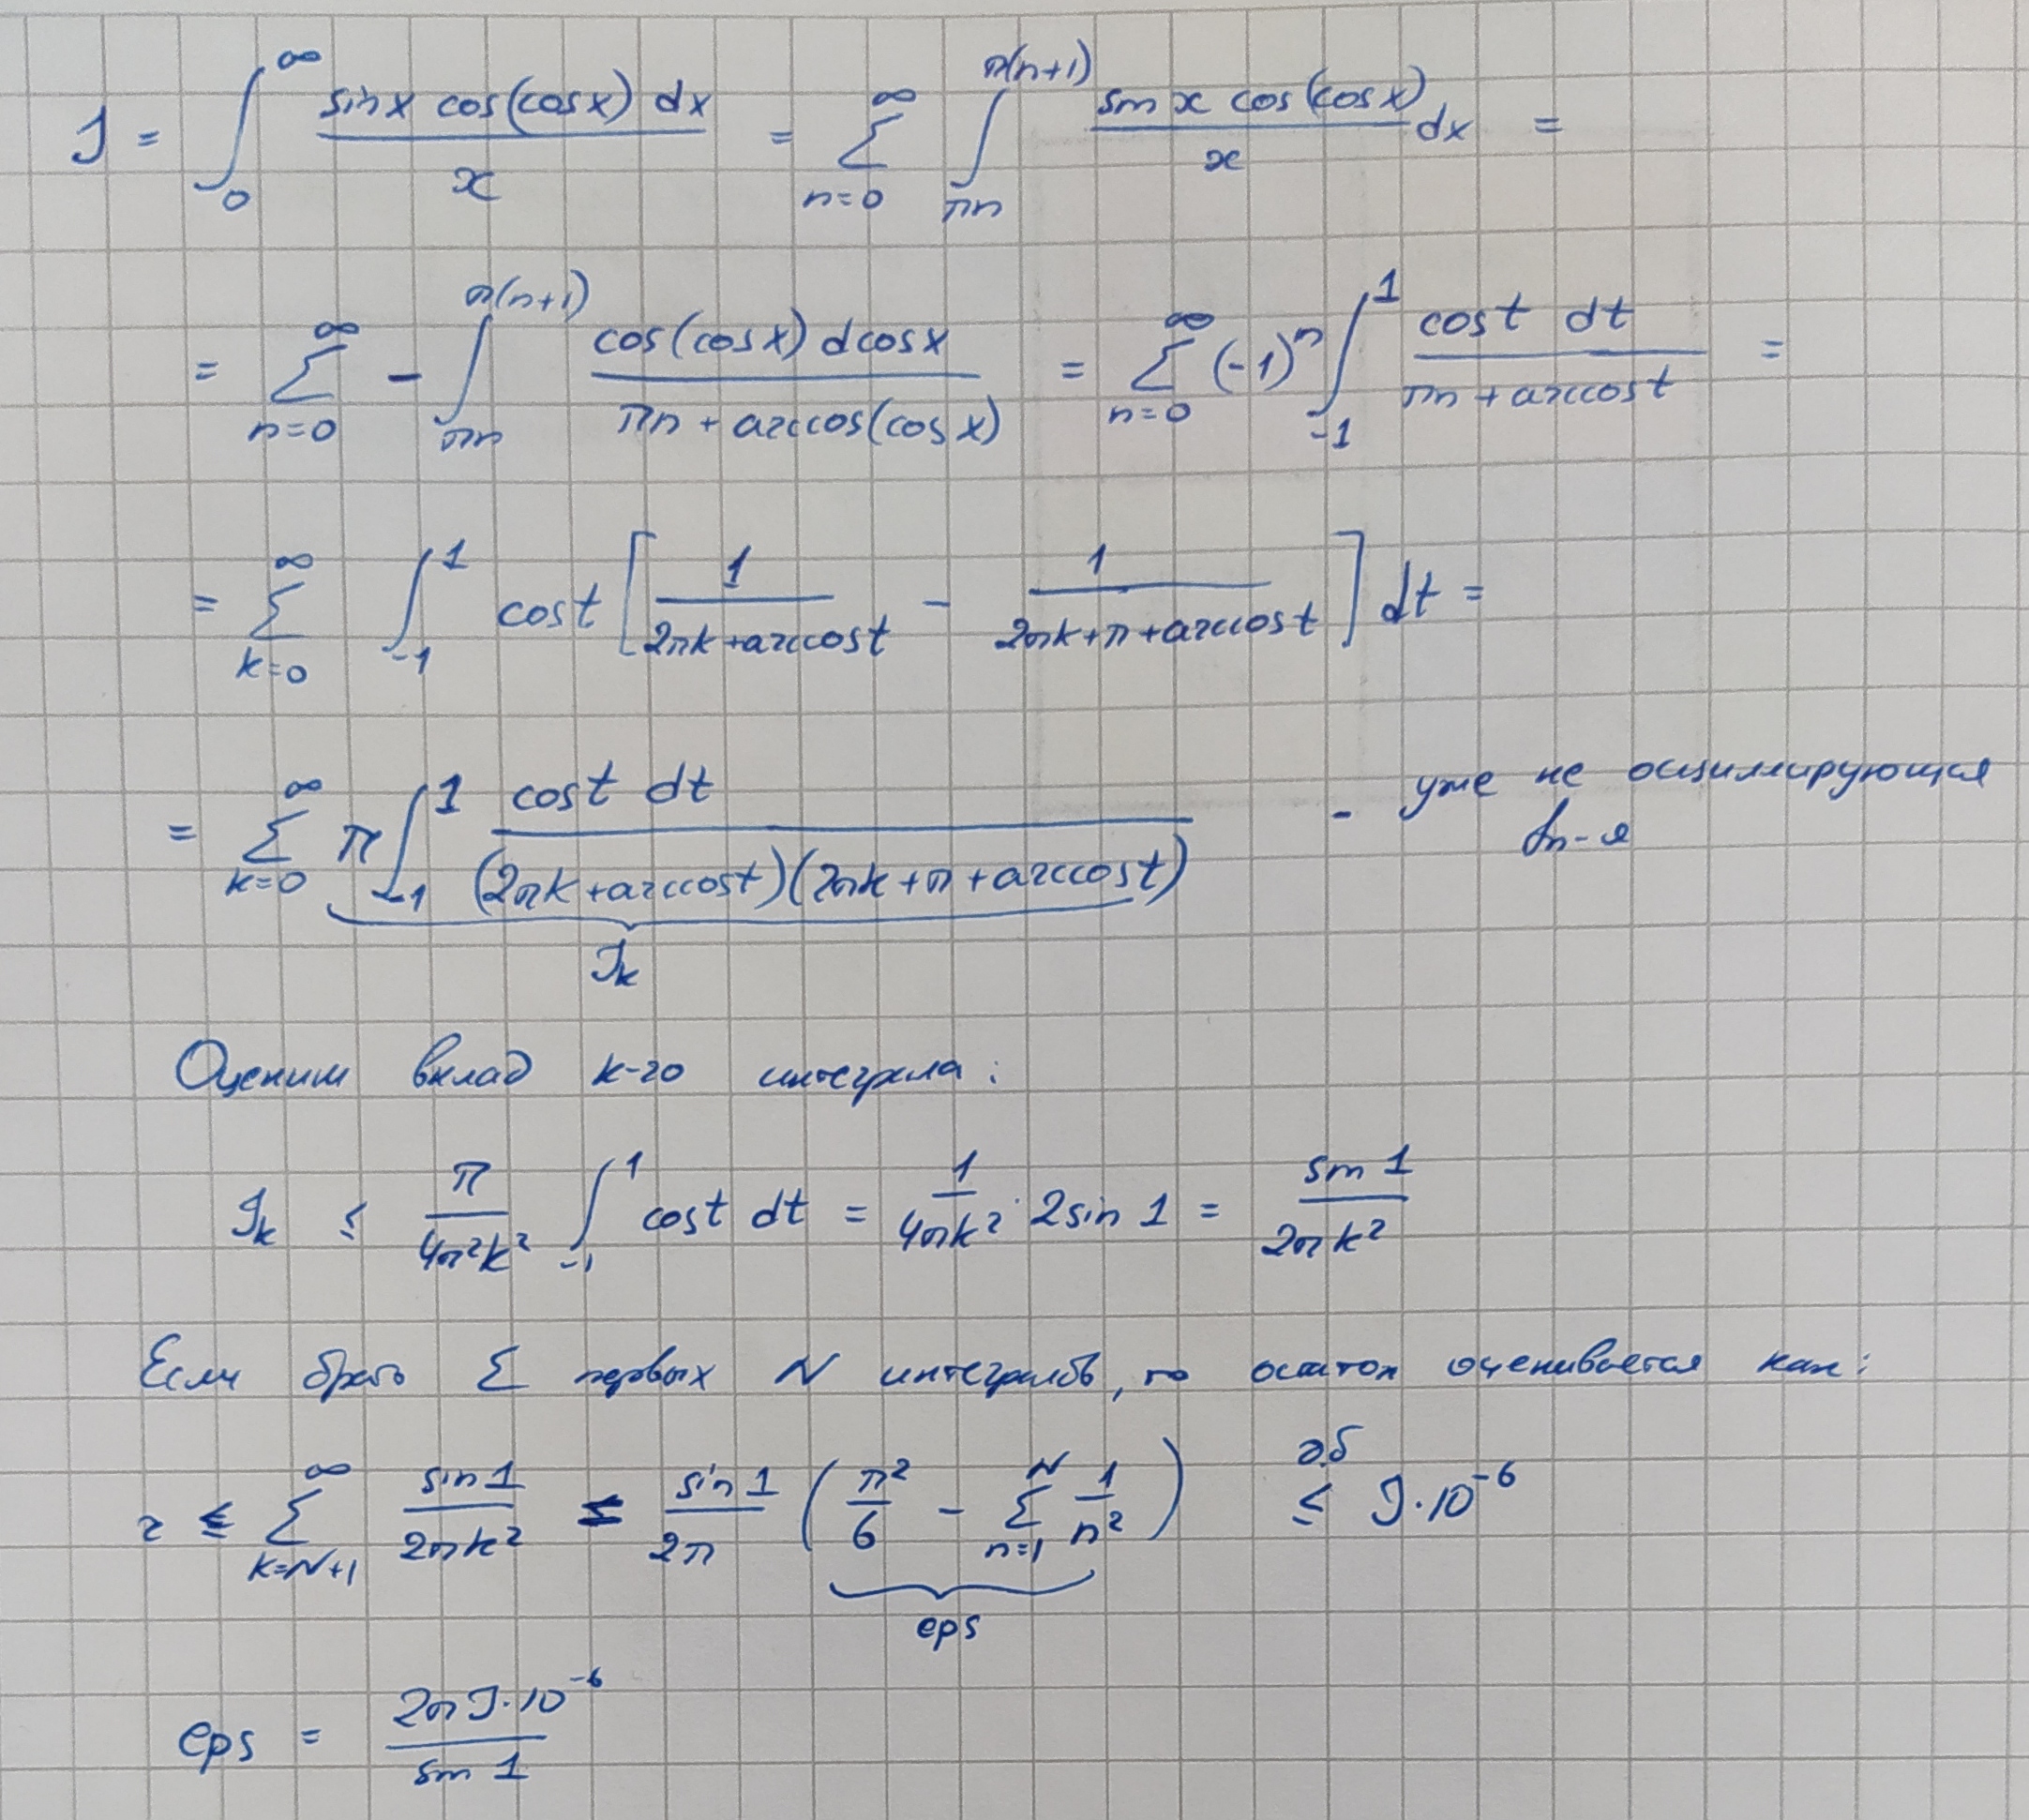 J = ∫_0^∞ sinx cos(cosx) dx / x = ∑_{n=0}^∞ ∫_{πn}^{π(n+1)} sin x cos(cosx) / x dx =
= ∑_{n=0}^∞ - ∫_{πn}^{π(n+1)} cos(cosx) dcosx / (πn + arccos(cosx)) = ∑_{n=0}^∞ (-1)^n ∫_{-1}^1 cost dt / (πn + arccost) =
= ∑_{k=0}^∞ ∫_{-1}^1 cost [1 / (2πk + arccost) - 1 / (2πk + π + arccost)] dt =
= ∑_{k=0}^∞ π ∫_{-1}^1 cost dt / ((2πk + arccost)(2πk + π + arccost)) - уже не осциллирующая
фn-я
J_k
Оценим вклад k-го интеграла:
J_k ≤ π / (4π²k²) ∫_{-1}^1 cost dt = 1 / (4πk²) · 2sin1 = sin1 / (2πk²)
Если брать ∑ первых N интегралов, то остаток оценивается как:
r ≤ ∑_{k=N+1}^∞ sin1 / (2πk²) ≤ sin1 / (2π) (π²/6 - ∑_{n=1}^N 1/n²) ≤ J·10^{-6}
eps
eps = 2πJ·10^{-6} / sin1